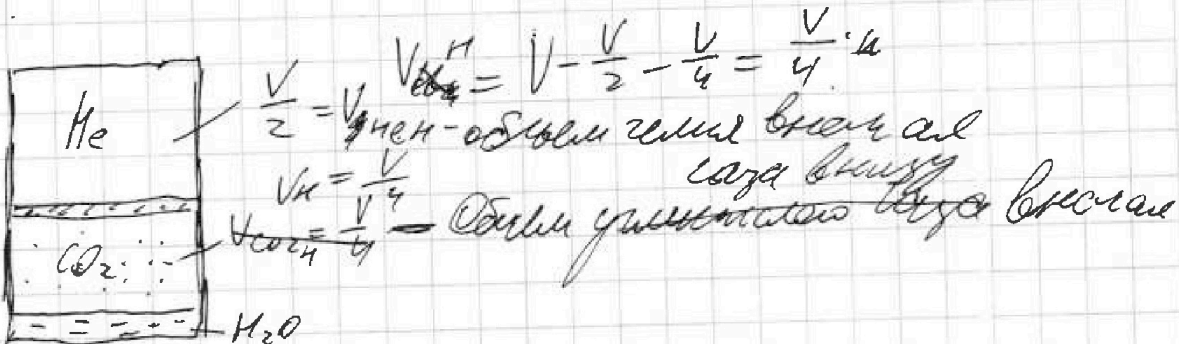 V н = V - V/2 - V/4 = V/4
He
V/2 = V - объем гелия вначале
Vн = V/4 газа внизу
CO₂
V_CO₂н = V/4 - Объем углекислого газа вначале
H₂O